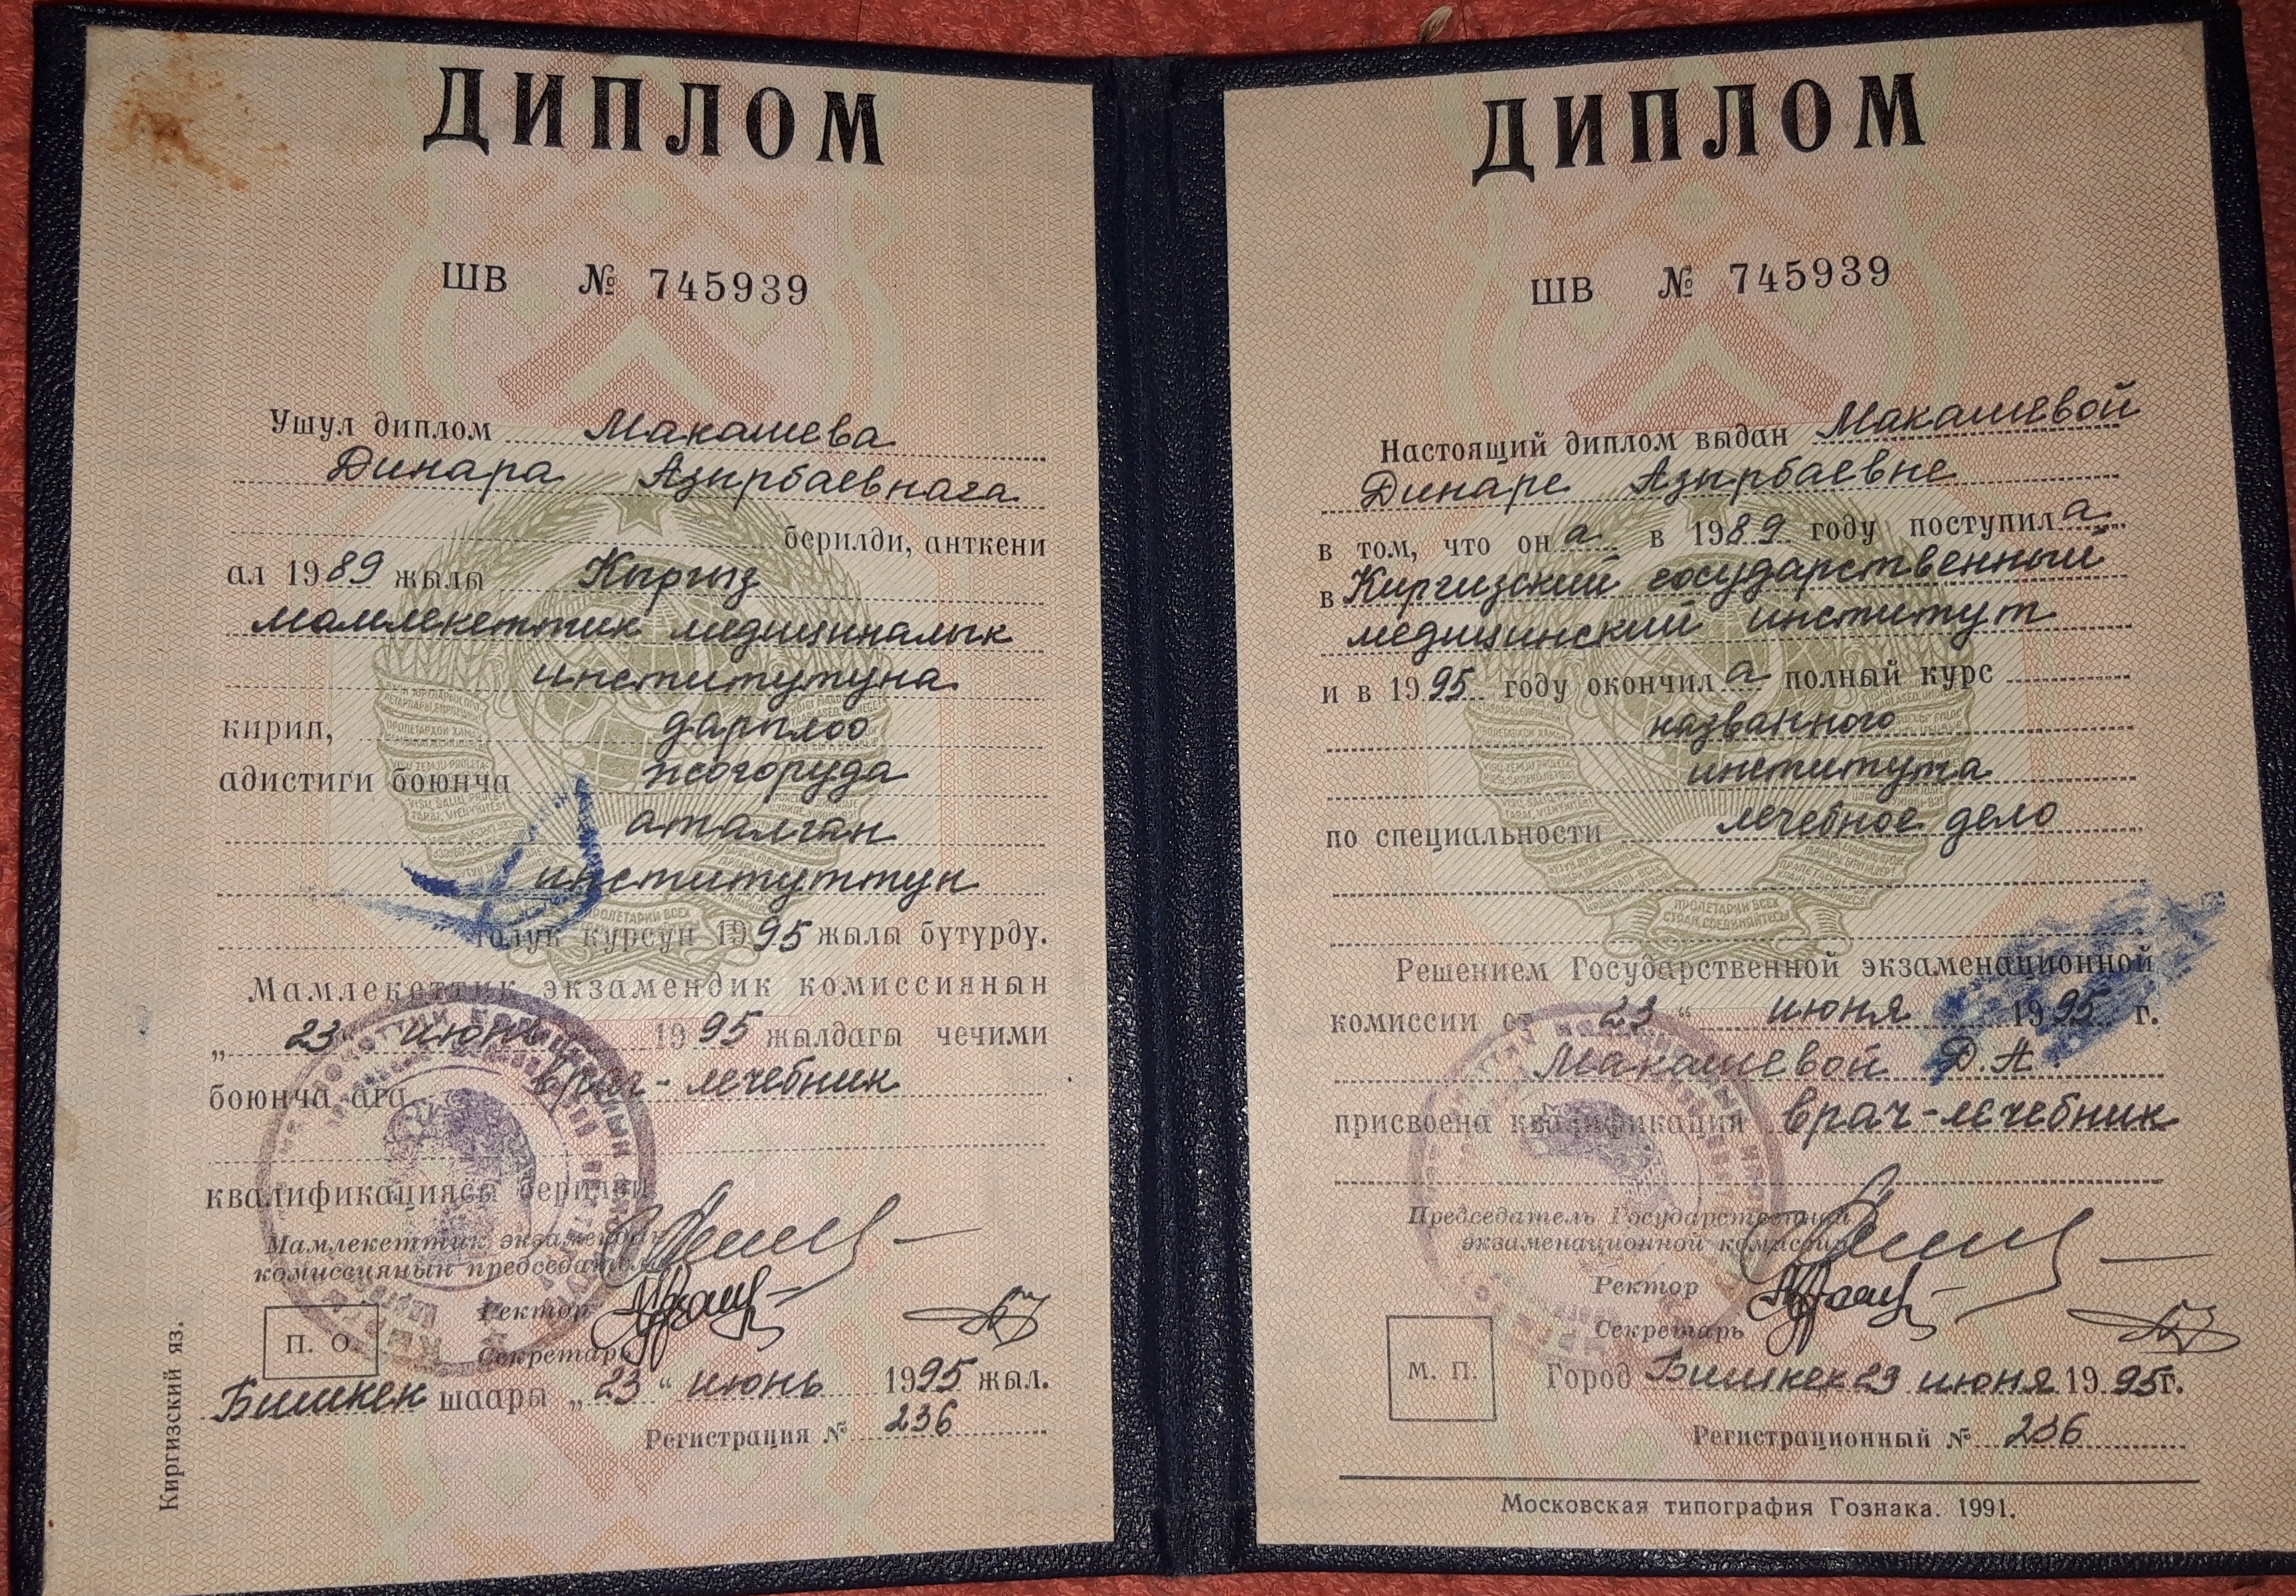 ДИПЛОМ
ШВ № 745939
Ушул диплом Макашева
Динара Азырбаевнага
берилди, анткени
ал 1989 жылы Кыргыз
мамлекеттик медициналык
институтуна
кирип, дарылоо
адистиги боюнча жогоруда
аталган
институттун
толук курсун 1995 жылы бүтүрдү.
Мамлекеттик экзамендик комиссиянын
„23“ июнь 1995 жылдагы чечими
боюнча ага врач-лечебник
квалификациясы берилди
Мамлекеттик экзамендик
комиссиянын председатели
Ректор
П. О.
Секретарь
Бишкек шаары „23“ июнь 1995 жыл.
Регистрация № 236
Киргизский яз.
ДИПЛОМ
ШВ № 745939
Настоящий диплом выдан Макашевой
Динаре Азырбаевне
в том, что она в 1989 году поступила
в Киргизский государственный
медицинский институт
и в 1995 году окончила полный курс
названного
института
по специальности лечебное дело
ПРОЛЕТАРИИ ВСЕХ
СТРАН, СОЕДИНЯЙТЕСЬ!
Решением Государственной экзаменационной
комиссии от 23 “ июня 1995 г.
Макашевой Д.А.
присвоена квалификация врач-лечебник
Председатель Государственной
экзаменационной комиссии
Ректор
Секретарь
М. П.
Город Бишкек 23 июня 1995г.
Регистрационный № 236
Московская типография Гознака. 1991.